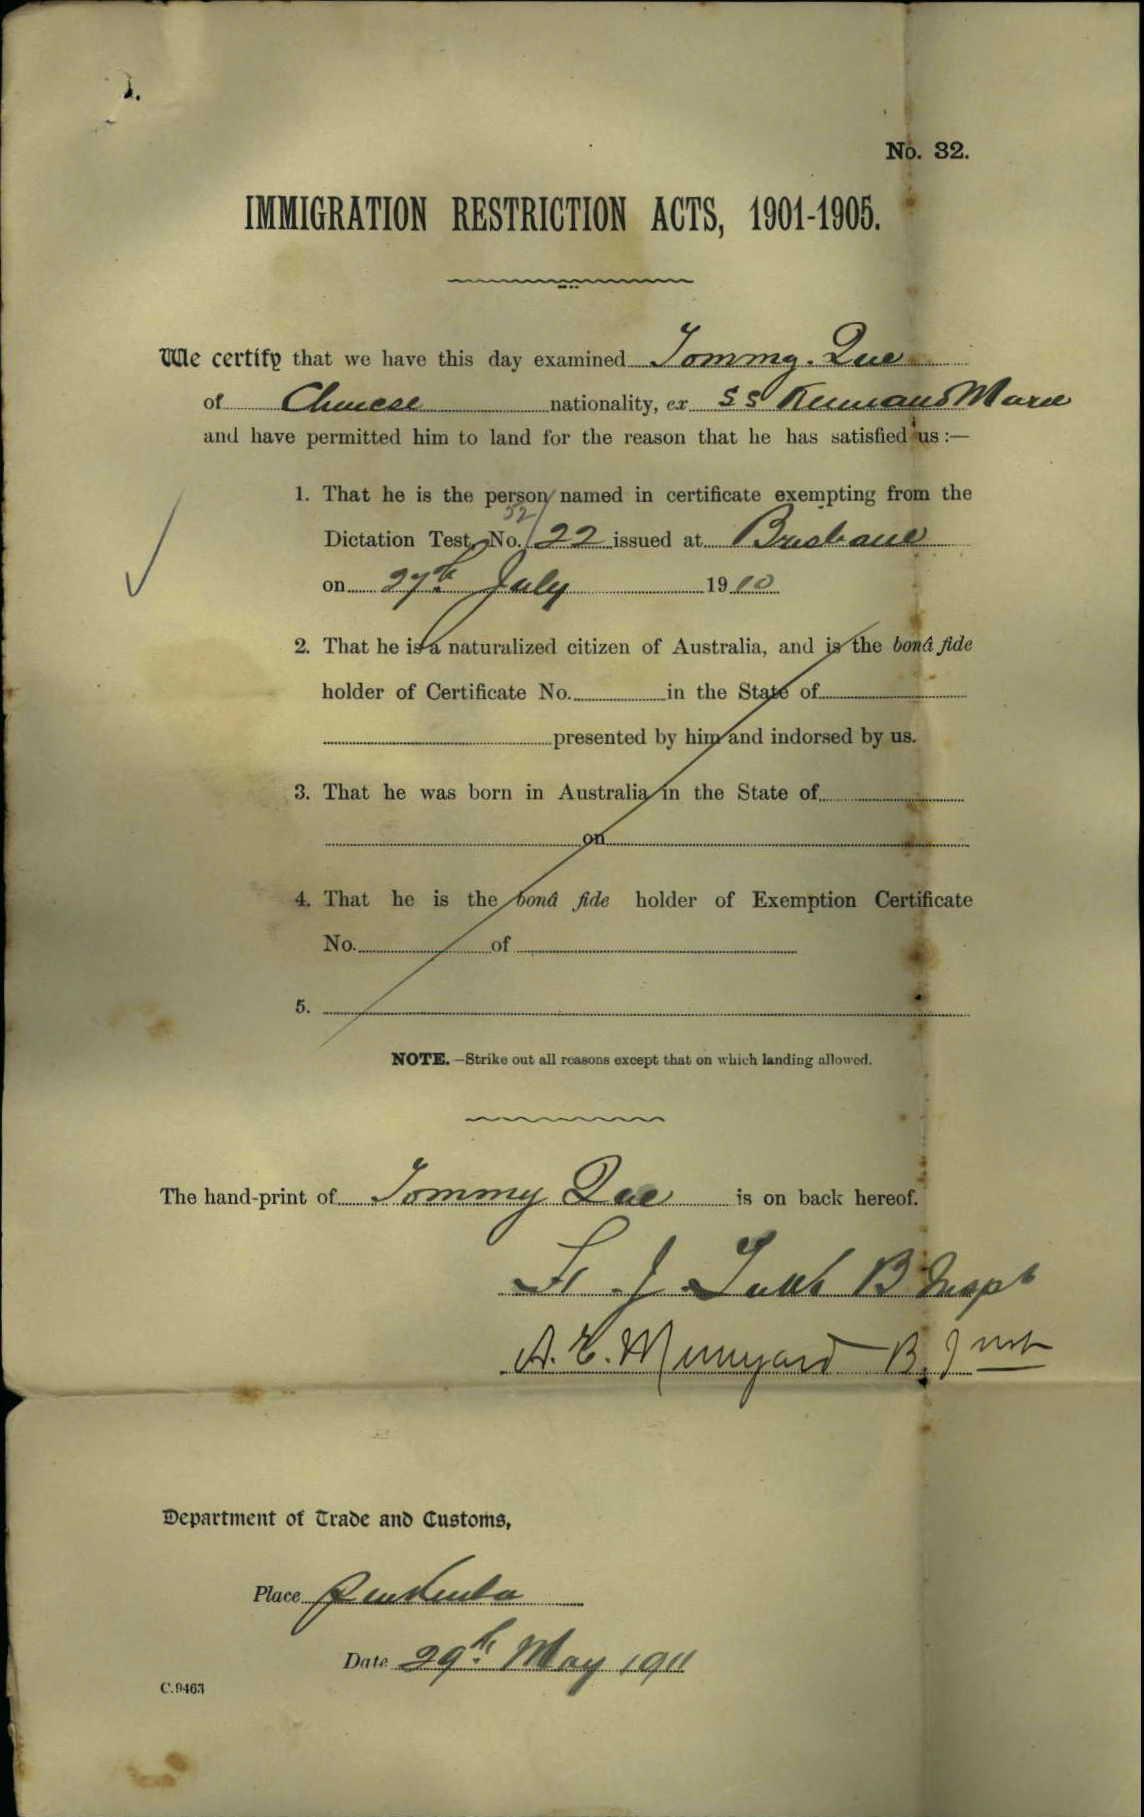 No. 32.
IMMIGRATION RESTRICTION ACTS, 1901-1905.
We certify that we have this day examined Tommy. Que
of Chinese nationality, ex S S Kumano Maru
and have permitted him to land for the reason that he has satisfied us :—
1. That he is the person named in certificate exempting from the
52/
Dictation Test, No. 22 issued at Brisbane
on 27th July 1910
2. That he is a naturalized citizen of Australia, and is the bonâ fide
holder of Certificate No. in the State of
presented by him and indorsed by us.
3. That he was born in Australia in the State of
on
4. That he is the bonâ fide holder of Exemption Certificate
No. of
5.
NOTE.—Strike out all reasons except that on which landing allowed.
The hand-print of Tommy Que is on back hereof.
J. B Inspt
A. E. Munyard B. Inst
Department of Trade and Customs,
Place Pinkenba
Date 29th May 1911
C.9463